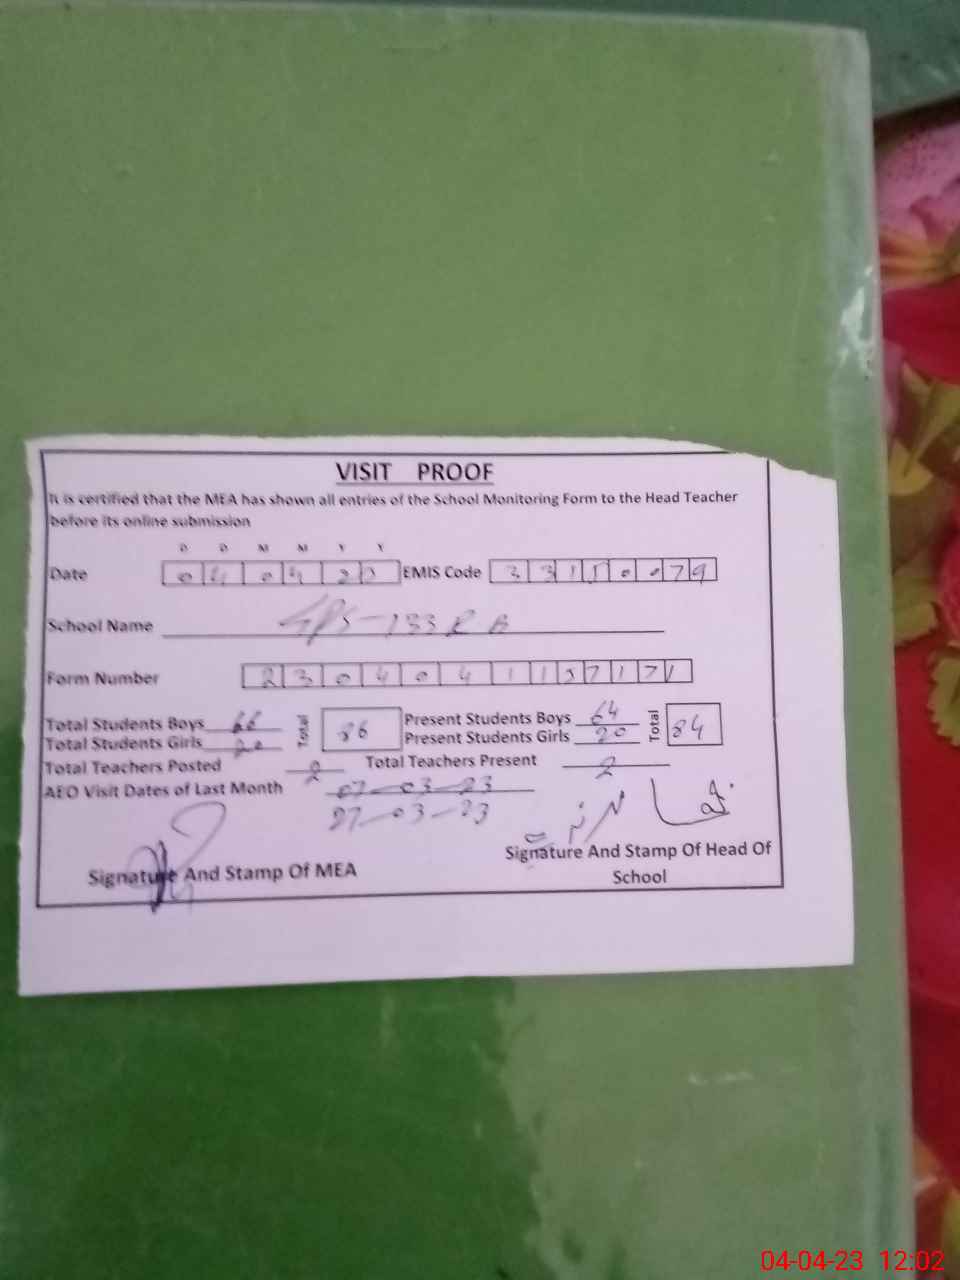 VISIT PROOF
It is certified that the MEA has shown all entries of the School Monitoring Form to the Head Teacher
before its online submission
D D M M Y Y
Date 04 04 23 EMIS Code 33150079
School Name GPS-133 R B
Form Number 23040411
Total Students Boys 66 Total 86 Present Students Boys 64 Total 84
Total Students Girls 20 Present Students Girls 20
Total Teachers Posted 2 Total Teachers Present 2
AEO Visit Dates of Last Month 07-03-23
27-03-23
Signature And Stamp Of MEA
Signature And Stamp Of Head Of
School
04-04-23 12:02